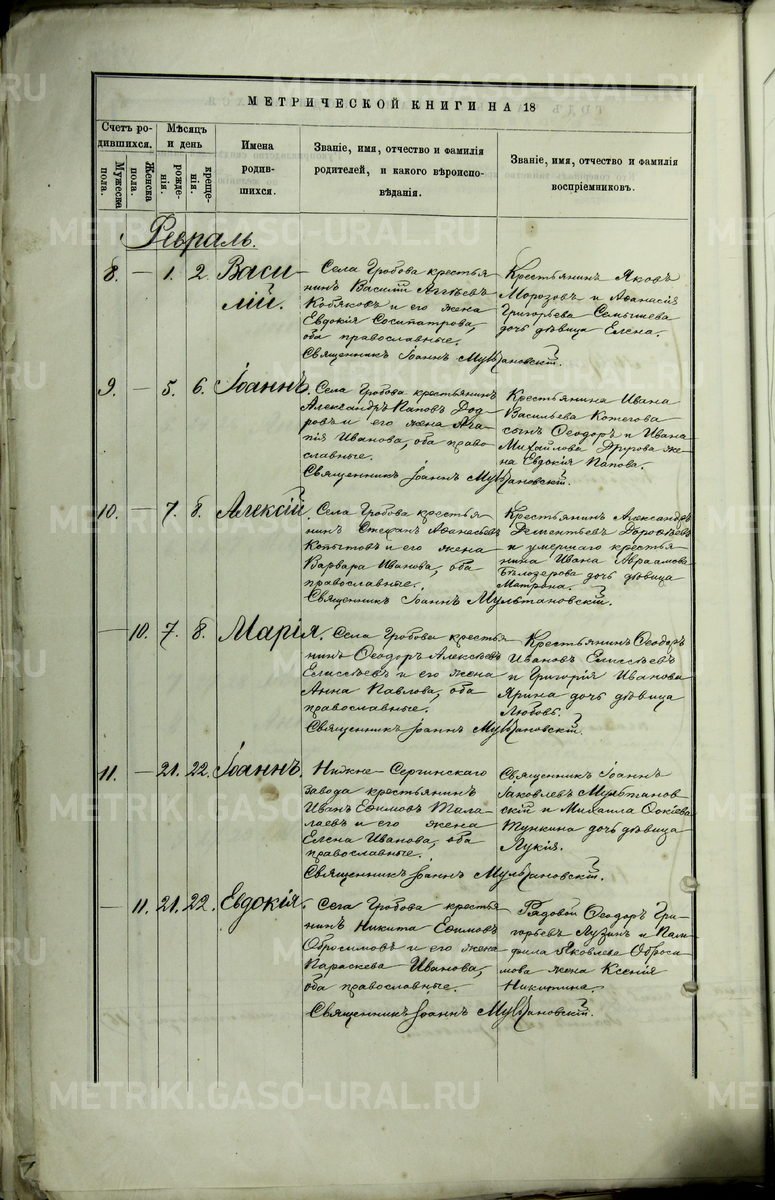 МЕТРИЧЕСКОЙ КНИГИ НА 18
Счетъ ро-
дившихся.
Мужеска
пола.
Женска
пола.
Мѣсяцъ
и день
рожде-
нія.
креще-
нія.
Имена
родив-
шихся.
Званіе, имя, отчество и фамилія
родителей, и какого вѣроиспо-
вѣданія.
Званіе, имя, отчество и фамилія
воспріемниковъ.
Февраль.
8. — 1. 2. Васи-
лій.
Села Гробова крестья-
нинъ Василій Аггѣевъ
Кобяковъ и его жена
Евдокія Сосипатрова,
оба православные.
Священникъ Іоаннъ Мультановскій.
Крестьянинъ Яковъ
Морозовъ и Аѳанасія
Григорьева Семышева
дочь дѣвица Елена.
9. — 5. 6. Іоаннъ.
Села Гробова крестьянинъ
Александръ
и его жена Ага-
пія Иванова, оба право-
славные.
Священникъ Іоаннъ Мультановскій.
Крестьянина Ивана
Васильева Котегова
сынъ Ѳеодоръ и Ивана
Михайлова же-
на Евдокія
10. — 7. 8. Алексій.
Села Гробова крестья-
нинъ Стефанъ Аѳанасьевъ
Копытовъ и его жена
Варвара Иванова, оба
православные.
Священникъ Іоаннъ Мультановскій.
Крестьянинъ Александръ
Дементьевъ Дороѳѣевъ
и умершаго крестья-
нина Ивана Авраамова
Бѣлозерова дочь дѣвица
Матрона.
— 10. 7. 8. Марія.
Села Гробова крестья-
нинъ Ѳеодоръ Алексѣевъ
Елисѣевъ и его жена
Анна Павлова, оба
православные.
Священникъ Іоаннъ Мультановскій.
Крестьянинъ Ѳеодоръ
Ивановъ Елисѣевъ
и Григорія Иванова
Ярина дочь дѣвица
Любовь.
11. — 21. 22. Іоаннъ.
Нижне-Сергинскаго
завода крестьянинъ
Иванъ Ефимовъ Тала-
лаевъ и его жена
Елена Иванова, оба
православные.
Священникъ Іоаннъ Мультановскій.
Священникъ Іоаннъ
Іаковлевъ Мультанов-
скій и Михаила
Тункина дочь дѣвица
Лукія.
— 11. 21. 22. Евдокія.
Села Гробова крестья-
нинъ Никита Ефимовъ
Обросимовъ и его жена
Параскева Иванова,
оба православные.
Священникъ Іоаннъ Мультановскій.
Рядовой Ѳеодоръ Гри-
горьевъ Лузинъ и Пам-
фила Яковлева Оброси-
мова жена Ксенія
Никитина.
METRIKI.GASO-URAL.RU